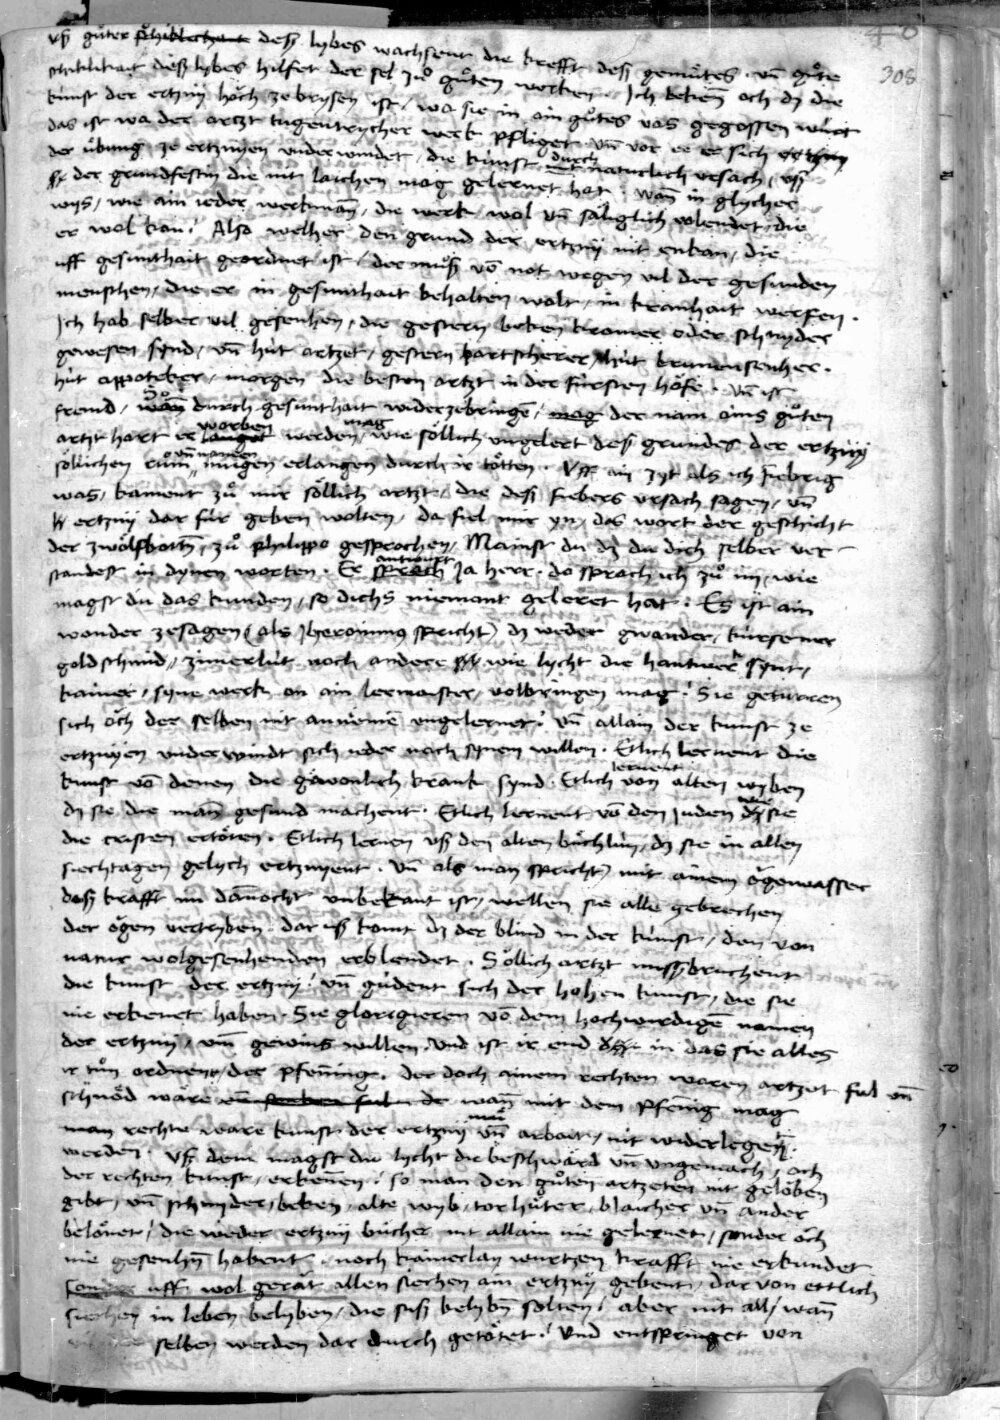 308
vß gůter deß lybes wachsent die krefft deß gemůtes. vn̄ gůte
schiklikait diess lybes hilfet der sel zů gůten worken. Ich beken̄ och dz die
kunst der ertzny hoch ze brysen ist, wa sie in ain gůtes vas gegossen wůrt
das ist wa der artzt tugentrycher werk pfliget vn̄ vor ee er sich
der ůbung ze ertznyen vnderwindet, die kunst durch naturlich vrsach, vß
der grundfestin die nit laichen mag gelernet hat. wan̄ in glycher
wys, wie ain ieder werkman̄, die werk wol vn̄ säliglich volendet, die
er wol kan. Also welher den grund der ertzny nit enkan, die
uff gesunthait geordnet ist, der můß vō not wegen vil der gesunden
menschen, die er in gesunthait behalten wolt, in krankhait werfen.
Ich hab selber vil gesenhen, die gestern beken kromer oder schnyder
gewesen synd, vn̄ hůt artzet, gestern bartscherer, hůt brunnensenher.
hůt appoteker, morgen die besten artzt in der fürsten höfe. vn̄ ist
fremd, so durch gesunthait widerzebringē, der nam ains gůten
artzt hart erworben werden mag, wie söllich vngelert deß grundes der ertzny
söllichen rům vn̄ namen mügen erlangen durch ir tötten. Vff ain zyt als ich febrig
was, kament zů mir söllich artzt, die deß fiebers vrsach sagen, vn̄
ertzny dar für geben wolten, da fiel mir yn, das wort der geschicht
der zwölfbottn̄, zů philippo gesprochen, Mainst du dz du dich selber ver-
standest in dynen worten. Er antwurt Ja herr. do sprach ich zů im, wie
magst du das kunden, so dichs niemant geleret hat. Es ist ain
wonder zesagen (als Jheronimus spricht) dz weder gwander, kürsener
goldschmid, zimerlüt noch andere wie lycht die hantwerk synt,
kainer, syne werk on ain lermaister, volbringen mag. Sie geturren
sich och der selben nit an niemē vngelernet. vn̄ allain der kunst ze
ertznyen vnderwindt sich ieder nach synem willen. Etlich lernent die
kunst vō denen die gäwonlich krank synd. Etlich lernent von alten wyben
dz sie die man̄ gesund machent. Etlich lernent vō den juden wie sie
die cristen ertöten. Etlich lernen vß den alten büchlin, dz sie in allen
siechtagen gelych ertznyent. vn̄ als man spricht, mit ainem ögenwasser
deß krafft im dan̄ocht unbekant ist, wellen sie alle gebrechen
der ögen vertryben. dar uß komt dz der blind in der kunst, den von
natur wolgesenhenden erblendet. Söllich artzt mißbruchent
die kunst der ertzny. vn̄ güdent sich der hohen kunst, die sie
nie erkennet haben. Sie glorigieren vō dem hochwirdigē namen
der ertzny, vm̄ gewins willen. Vnd ist ir end in das sie alles
ir tůn ordnen, der pfenning. der doch ainem rechten waren artzet ful vn̄
schnöd wäre wan̄ mit dem pfen̄ig mag
rechte ware kunst der ertzny vn̄ arbait, nit widerleget
werden. vß dem magst du lycht die beschwärd vn̄ vngemach, och
der rechten kunst, erkennen. so man den gůten artzeten nit gelöben
gibt, vn̄ schnyder, beken, alte wyb, torhůter, blaicher vn̄ ander
belönet, die weder ertzny bücher nit allain nie gelernet, sonder och
nie gesenhn̄ habent, noch kainerlay wurtzen krafft nie erkundet
uff wol gerät allen siechen ain ertzny gebent, dar von ettlich
siechen in leben belyben, die suß belybn̄ solten. aber nit all, wan̄
selben werden dar durch getötet. Vnd entspringet von